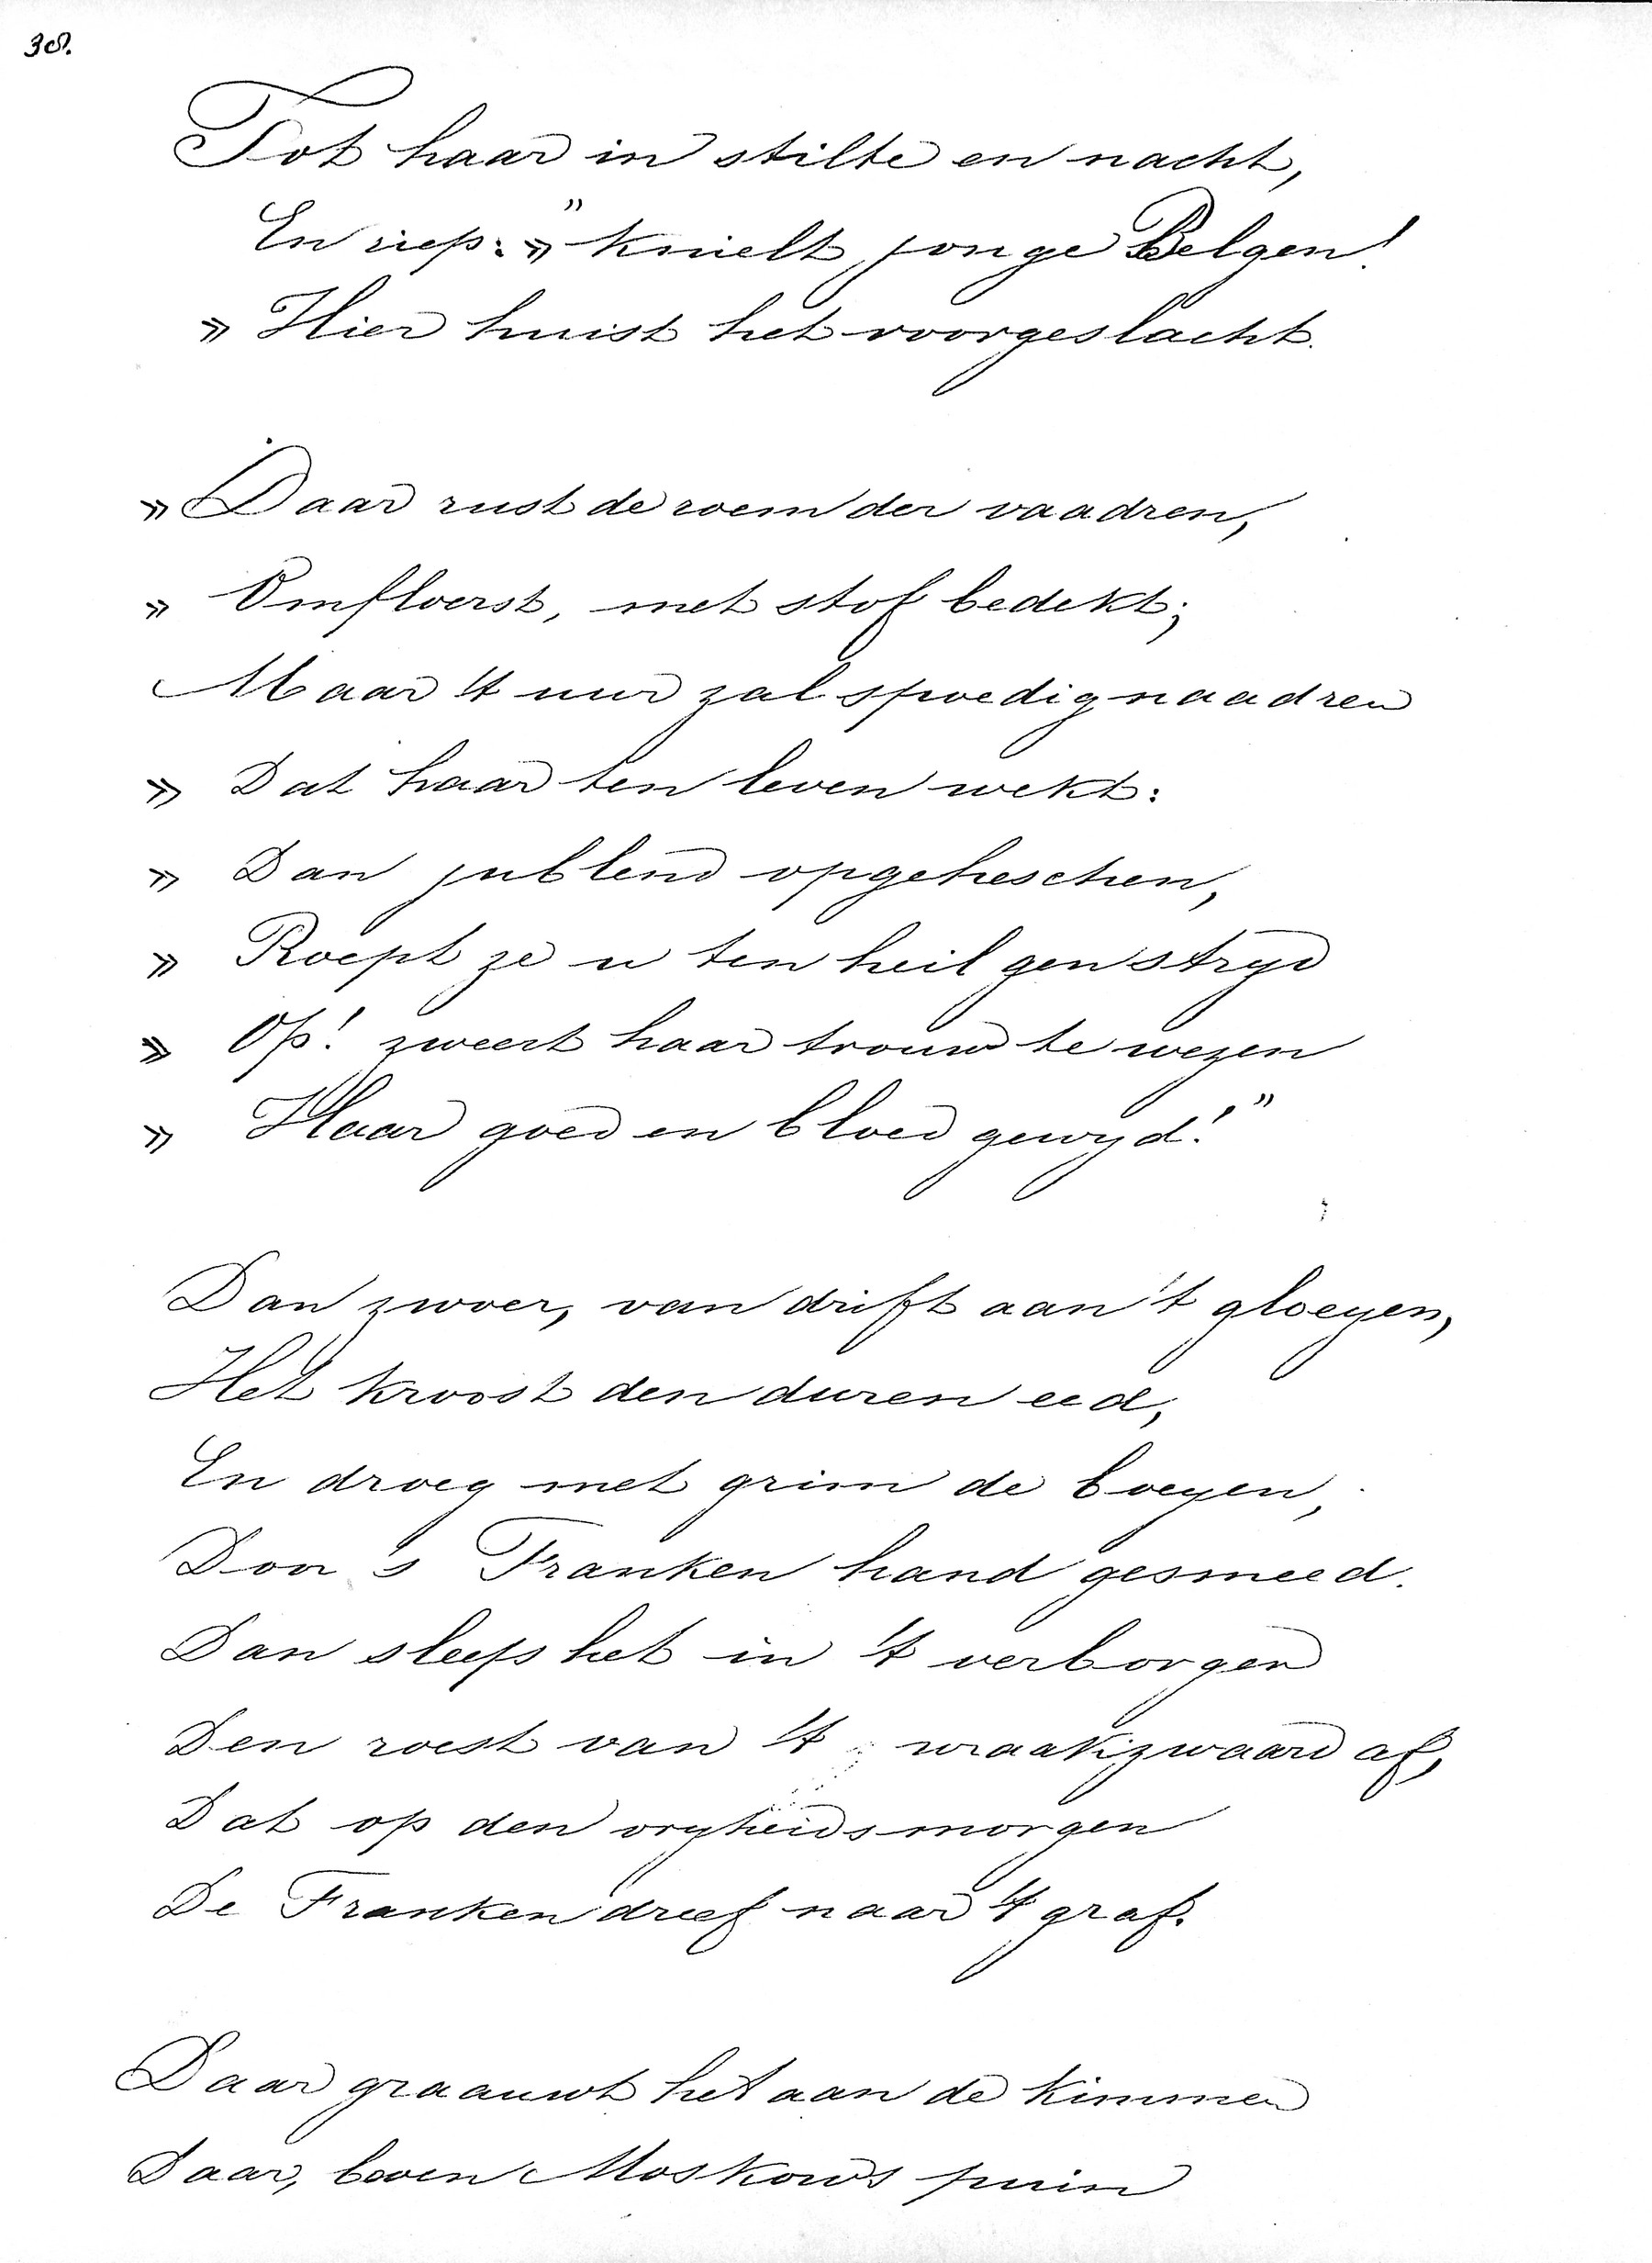 38.
Tot haar in stilte en nacht,
En riep: » " knielt jonge Belgen!
» Hier huist het voorgeslacht.
» Daar rust de roem der vaadren,
» Omfloerst, met stof bedekt;
Maar 't uur zal spoedig naadren
» Dat haar ten leven wekt:
» Dan jublend opgeheschen,
» Roept ze u ten heil gen stryd
» Op! zweert haar trouw te wezen
» Haar goed en bloed gewyd!"
Dan zwoer, van drift aan 't gloeyen,
Het kroost den duren eed,
En droeg met grim de boeyen,
Door 's Franken hand gesmeed.
Dan sleep het in 't verborgen
Den roest van 't wraakzwaard af,
Dat op den vryheidsmorgen
De Franken dreef naar 't graf.
Daar graauwt het aan de kimmen
Daar, boven Moskows puin